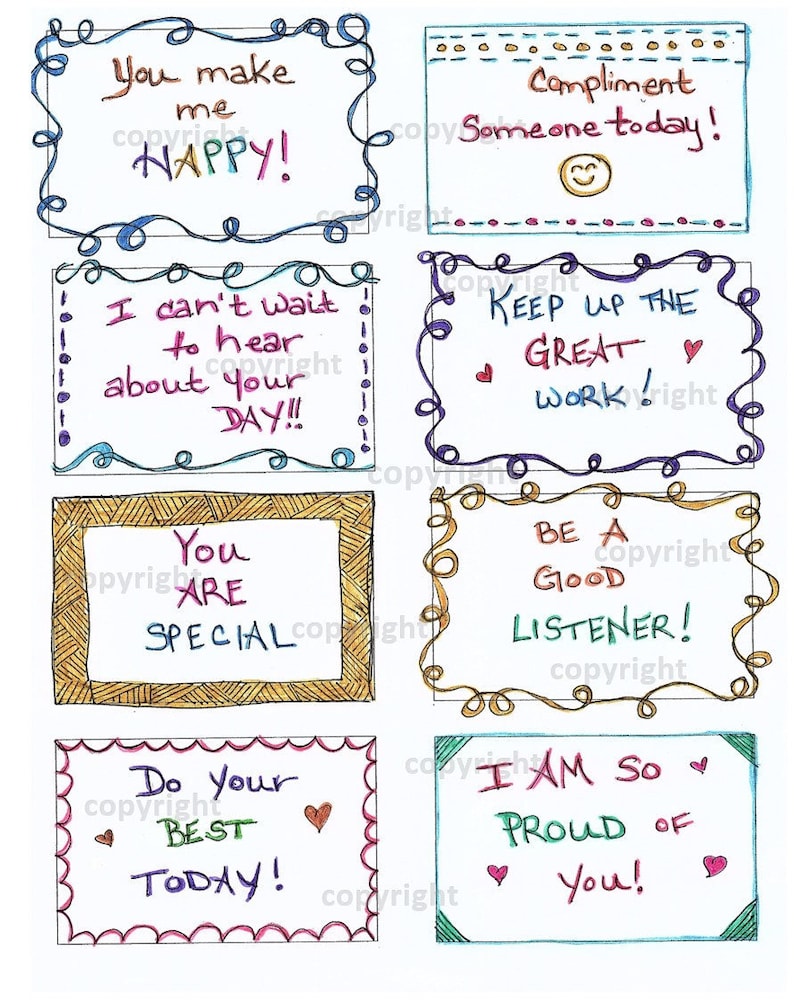 You make
me
HAPPY!
Compliment
Someone today!
I can't wait
to hear
about your
DAY!!!
KEEP UP THE
GREAT
WORK!
YOU
ARE
SPECIAL
BE A
GOOD
LISTENER!
Do your
BEST
TODAY!
I AM SO
PROUD OF
you!
copyright
copyright
copyright
copyright
copyright
copyright
copyright
copyright
copyright
copyright
copyright
copyright
copyright
copyright